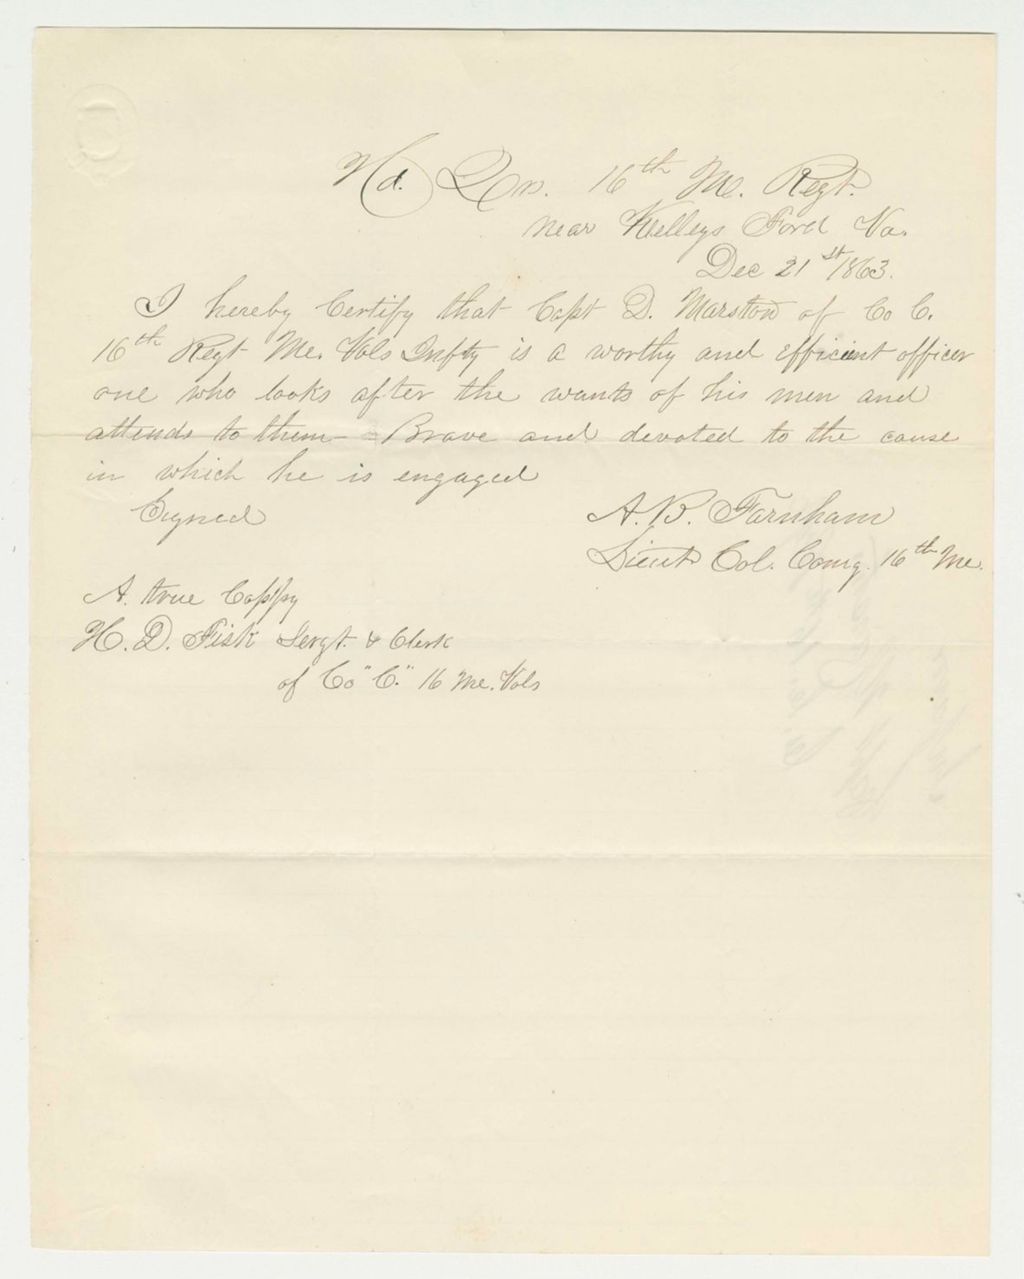 Hd. Qrs. 16th Me. Regt.
near Kelleys Ford Va.
Dec 21st 1863.
I hereby Certify that Capt D. Marston of Co C.
16th Regt Me. Vols Infty is a worthy and efficient officer
one who looks after the wants of his men and
attends to them - Brave and devoted to the cause
in which he is engaged
Signed
A. B. Farnham
Lieut Col. Comg. 16th Me.
A. true Coppy
H. D. Fisk Sergt. & Clerk
of Co "C." 16 Me. Vols